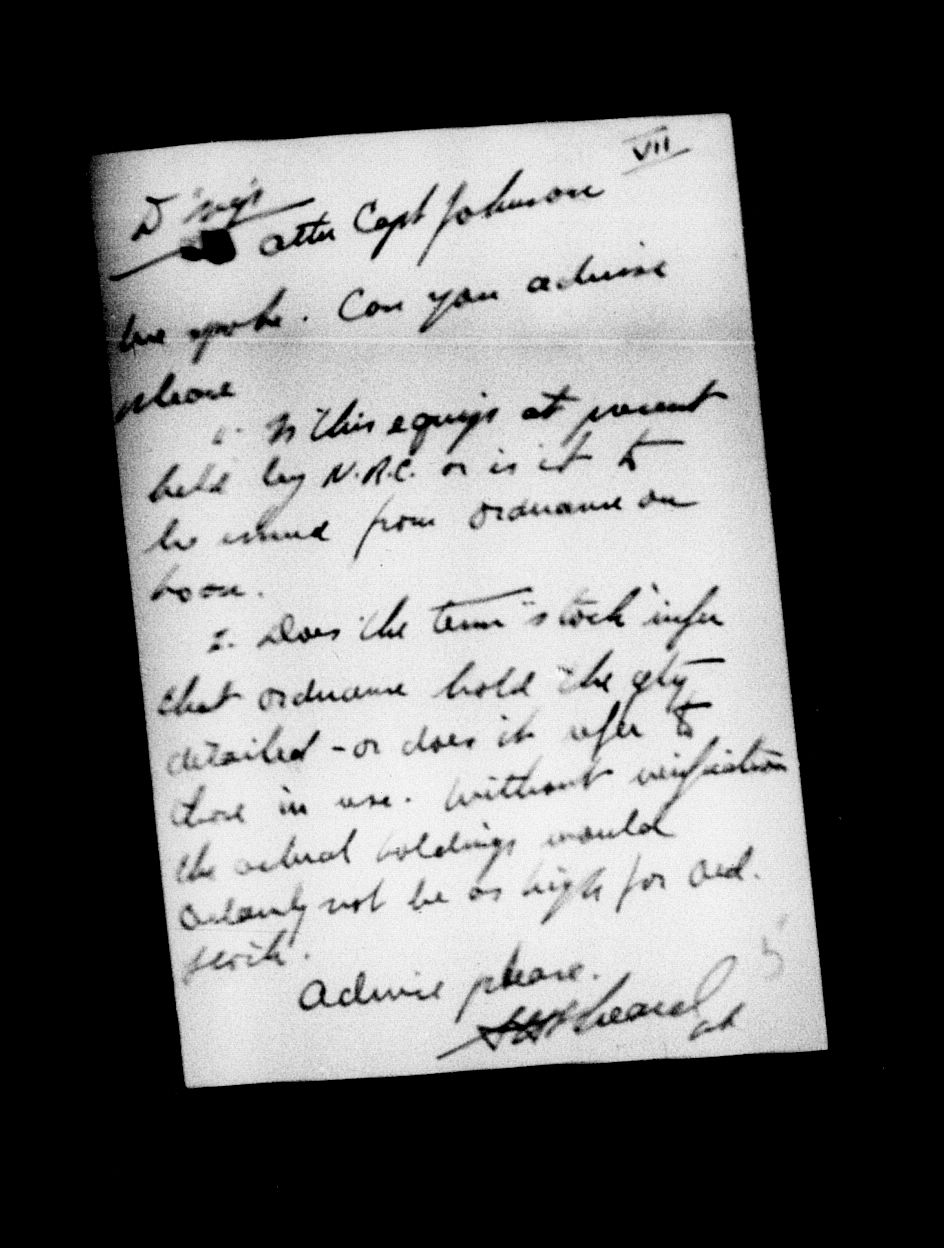 VII
D Sigs
attn Capt Johnson
We spoke. Can you advise
please
1. Is this equip at present
held by N.R.C. or is it to
be issued from ordnance on
loan.
2. Does the term "stock" infer
that ordnance hold the qty
detailed - or does it refer to
those in use. Without verification
the actual holdings would
certainly not be as high for Ord.
stock.
Advise please.